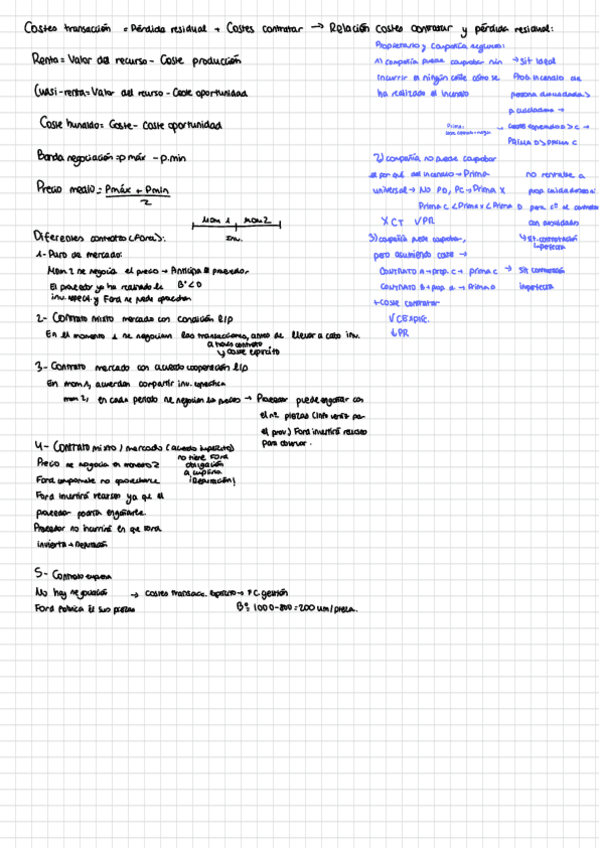 Costes transacción = Pérdida residual + Costes contratar → Relación costes contratar y pérdida residual:
Renta = Valor del recurso - Coste producción
Cuasi-renta = Valor del recurso - Coste oportunidad
Coste hundido = Coste - coste oportunidad
Banda negociación = p máx - p.min
Precio medio = Pmáx + Pmin
2
Mom 1 Mom 2
Inv.
Diferentes contratos (Ford):
1- Puro de mercado:
Mom 2 se negocia el precio → Anticipa el proveedor.
El proveedor ya ha realizado la B° < 0
inv. especif. y Ford se puede aprovechar
2- Contrato mixto mercado con condición e/p
En el momento 1 se negocian las transacciones, antes de llevar a cabo inv.
y coste explícito
3- Contrato mercado con acuerdo cooperación e/p
En mom 1, acuerdan compartir inv. específica
mom 2, en cada periodo se negocian los precios → Proveedor puede engañar con
el nº piezas
el prov.) Ford invertirá recursos
para observar.
4- Contrato mixto / mercado (acuerdo implícito)
Precio se negocia en momento 2
no tiene Ford
obligación
a cumplirla
(Reputación)
Ford compromete no aprovecharse
Ford invertirá recursos ya que el
proveedor podría engañarle.
Proveedor no incurrirá en que Ford
invierta → Reputación
5- Contrato empresa
No hay negociación → costes transacc. explícito → ↑C. gestión
Ford fabrica él sus piezas B°: 1000-800 = 200 um/pieza.
Propietario y compañía seguros:
1) compañía puede comprobar sin → sit ideal
incurrir en ningún coste cómo se
ha realizado el incendio
Prob. incendio de
persona descuidada >
p. cuidadosa →
coste esperado D > C →
PRIMA D > PRIMA C
2) compañía no puede comprobar
el por qué del incendio → Prima
universal → No PD, PC → Prima X
Prima C < Prima X < Prima D
no rentable a
prop. cuidadosos
con descuidados
X CT V PR
3) compañía puede comprobar,
pero asumiendo coste →
CONTRATO A → prop. C → prima C → sit contratación
CONTRATO B → prop. D → Prima D imperfecta
+ coste contratar
↓ PR